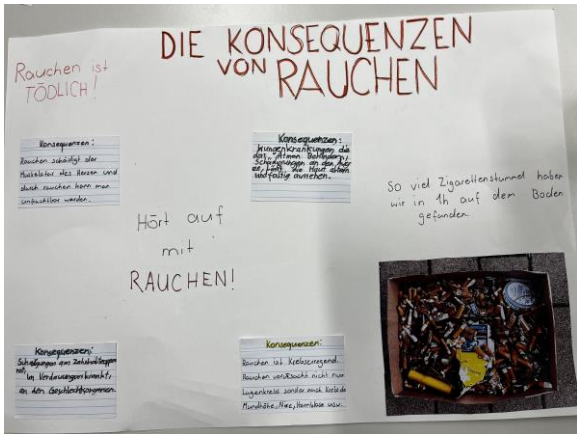 DIE KONSEQUENZEN
VON RAUCHEN
Rauchen ist
TÖDLICH!
Konsequenzen:
Rauchen schädigt der
Muskelatur des Herzen und
durch rauchen kann man
unfruchtbar werden.
Konsequenzen:
Lungenkrankungen die
das Atmen Behindern,
Schädigungen an den
die Haut altern
und faltig aussehen.
So viel Zigarettenstummel haben
wir in 1h auf dem Boden
gefunden.
Hört auf
mit
RAUCHEN!
Konsequenzen:
Schädigungen am Zahnhalteappa
rat, im Verdauungstrakt,
an den Geschlechtsorganen.
Konsequenzen:
Rauchen ist Krebserregend.
Rauchen verursacht nicht nur
Lugenkrebs sonder auch krebs da
Mundhöhle, Niere, Harnblase usw.